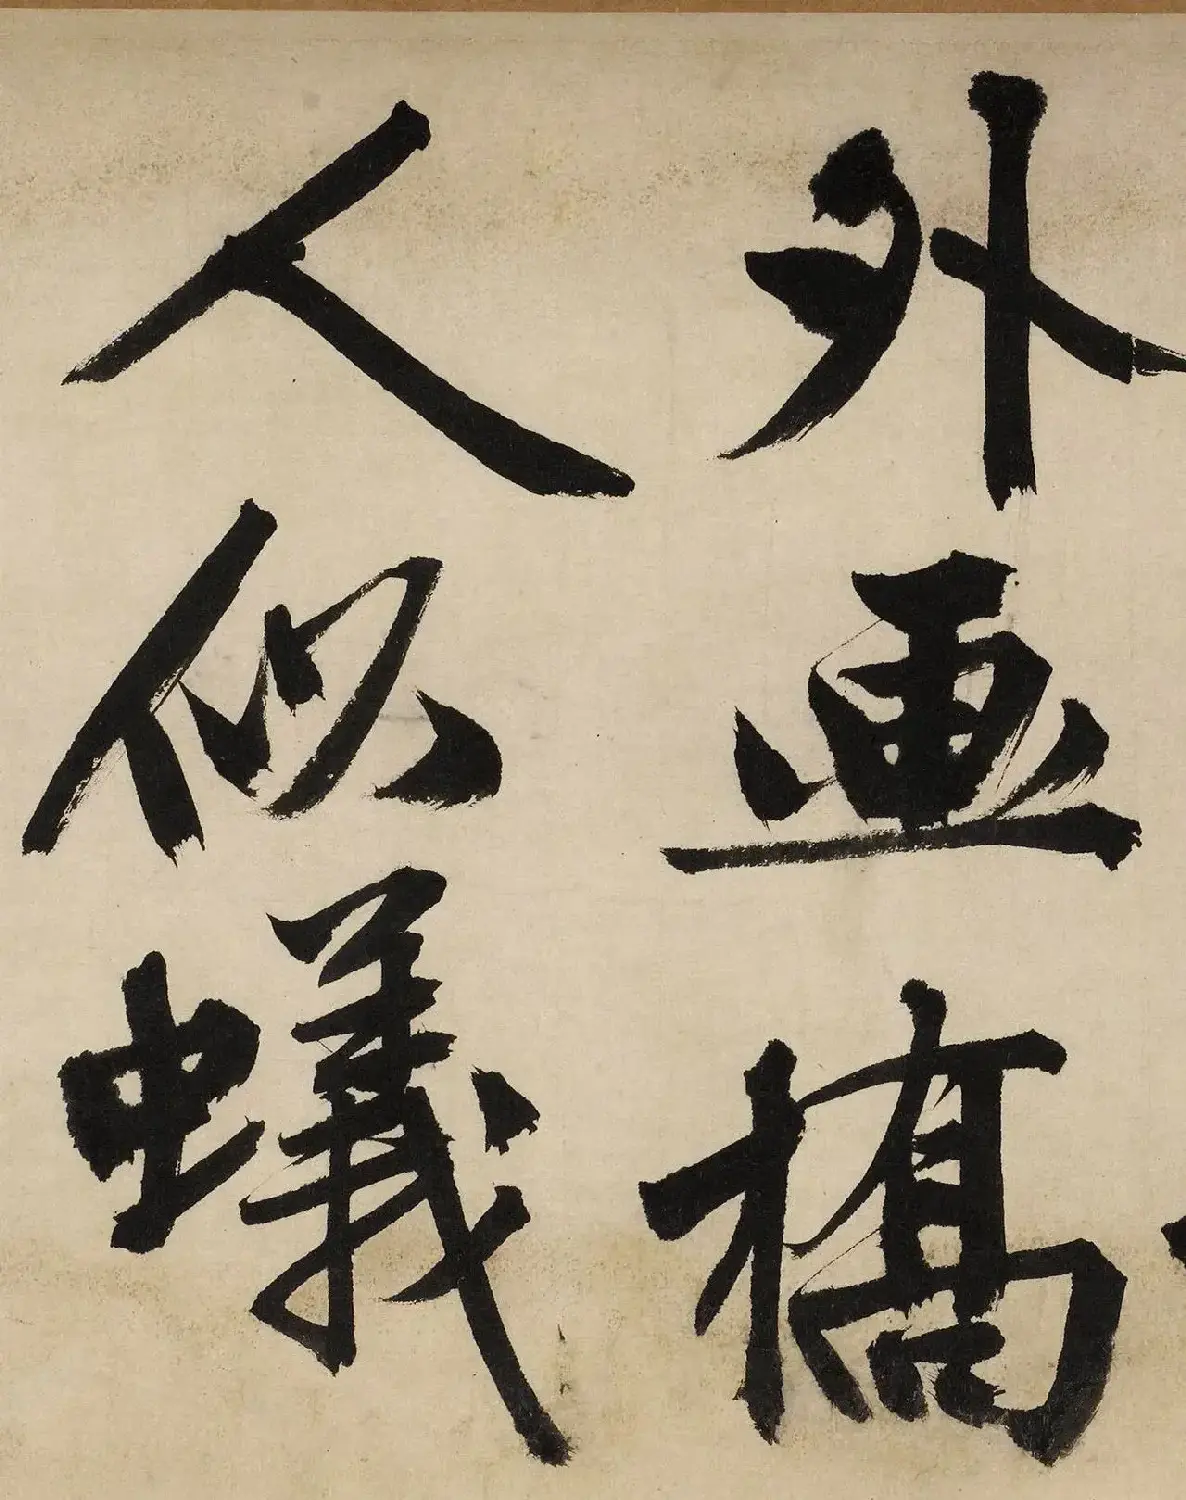 外画橋
人似蟻